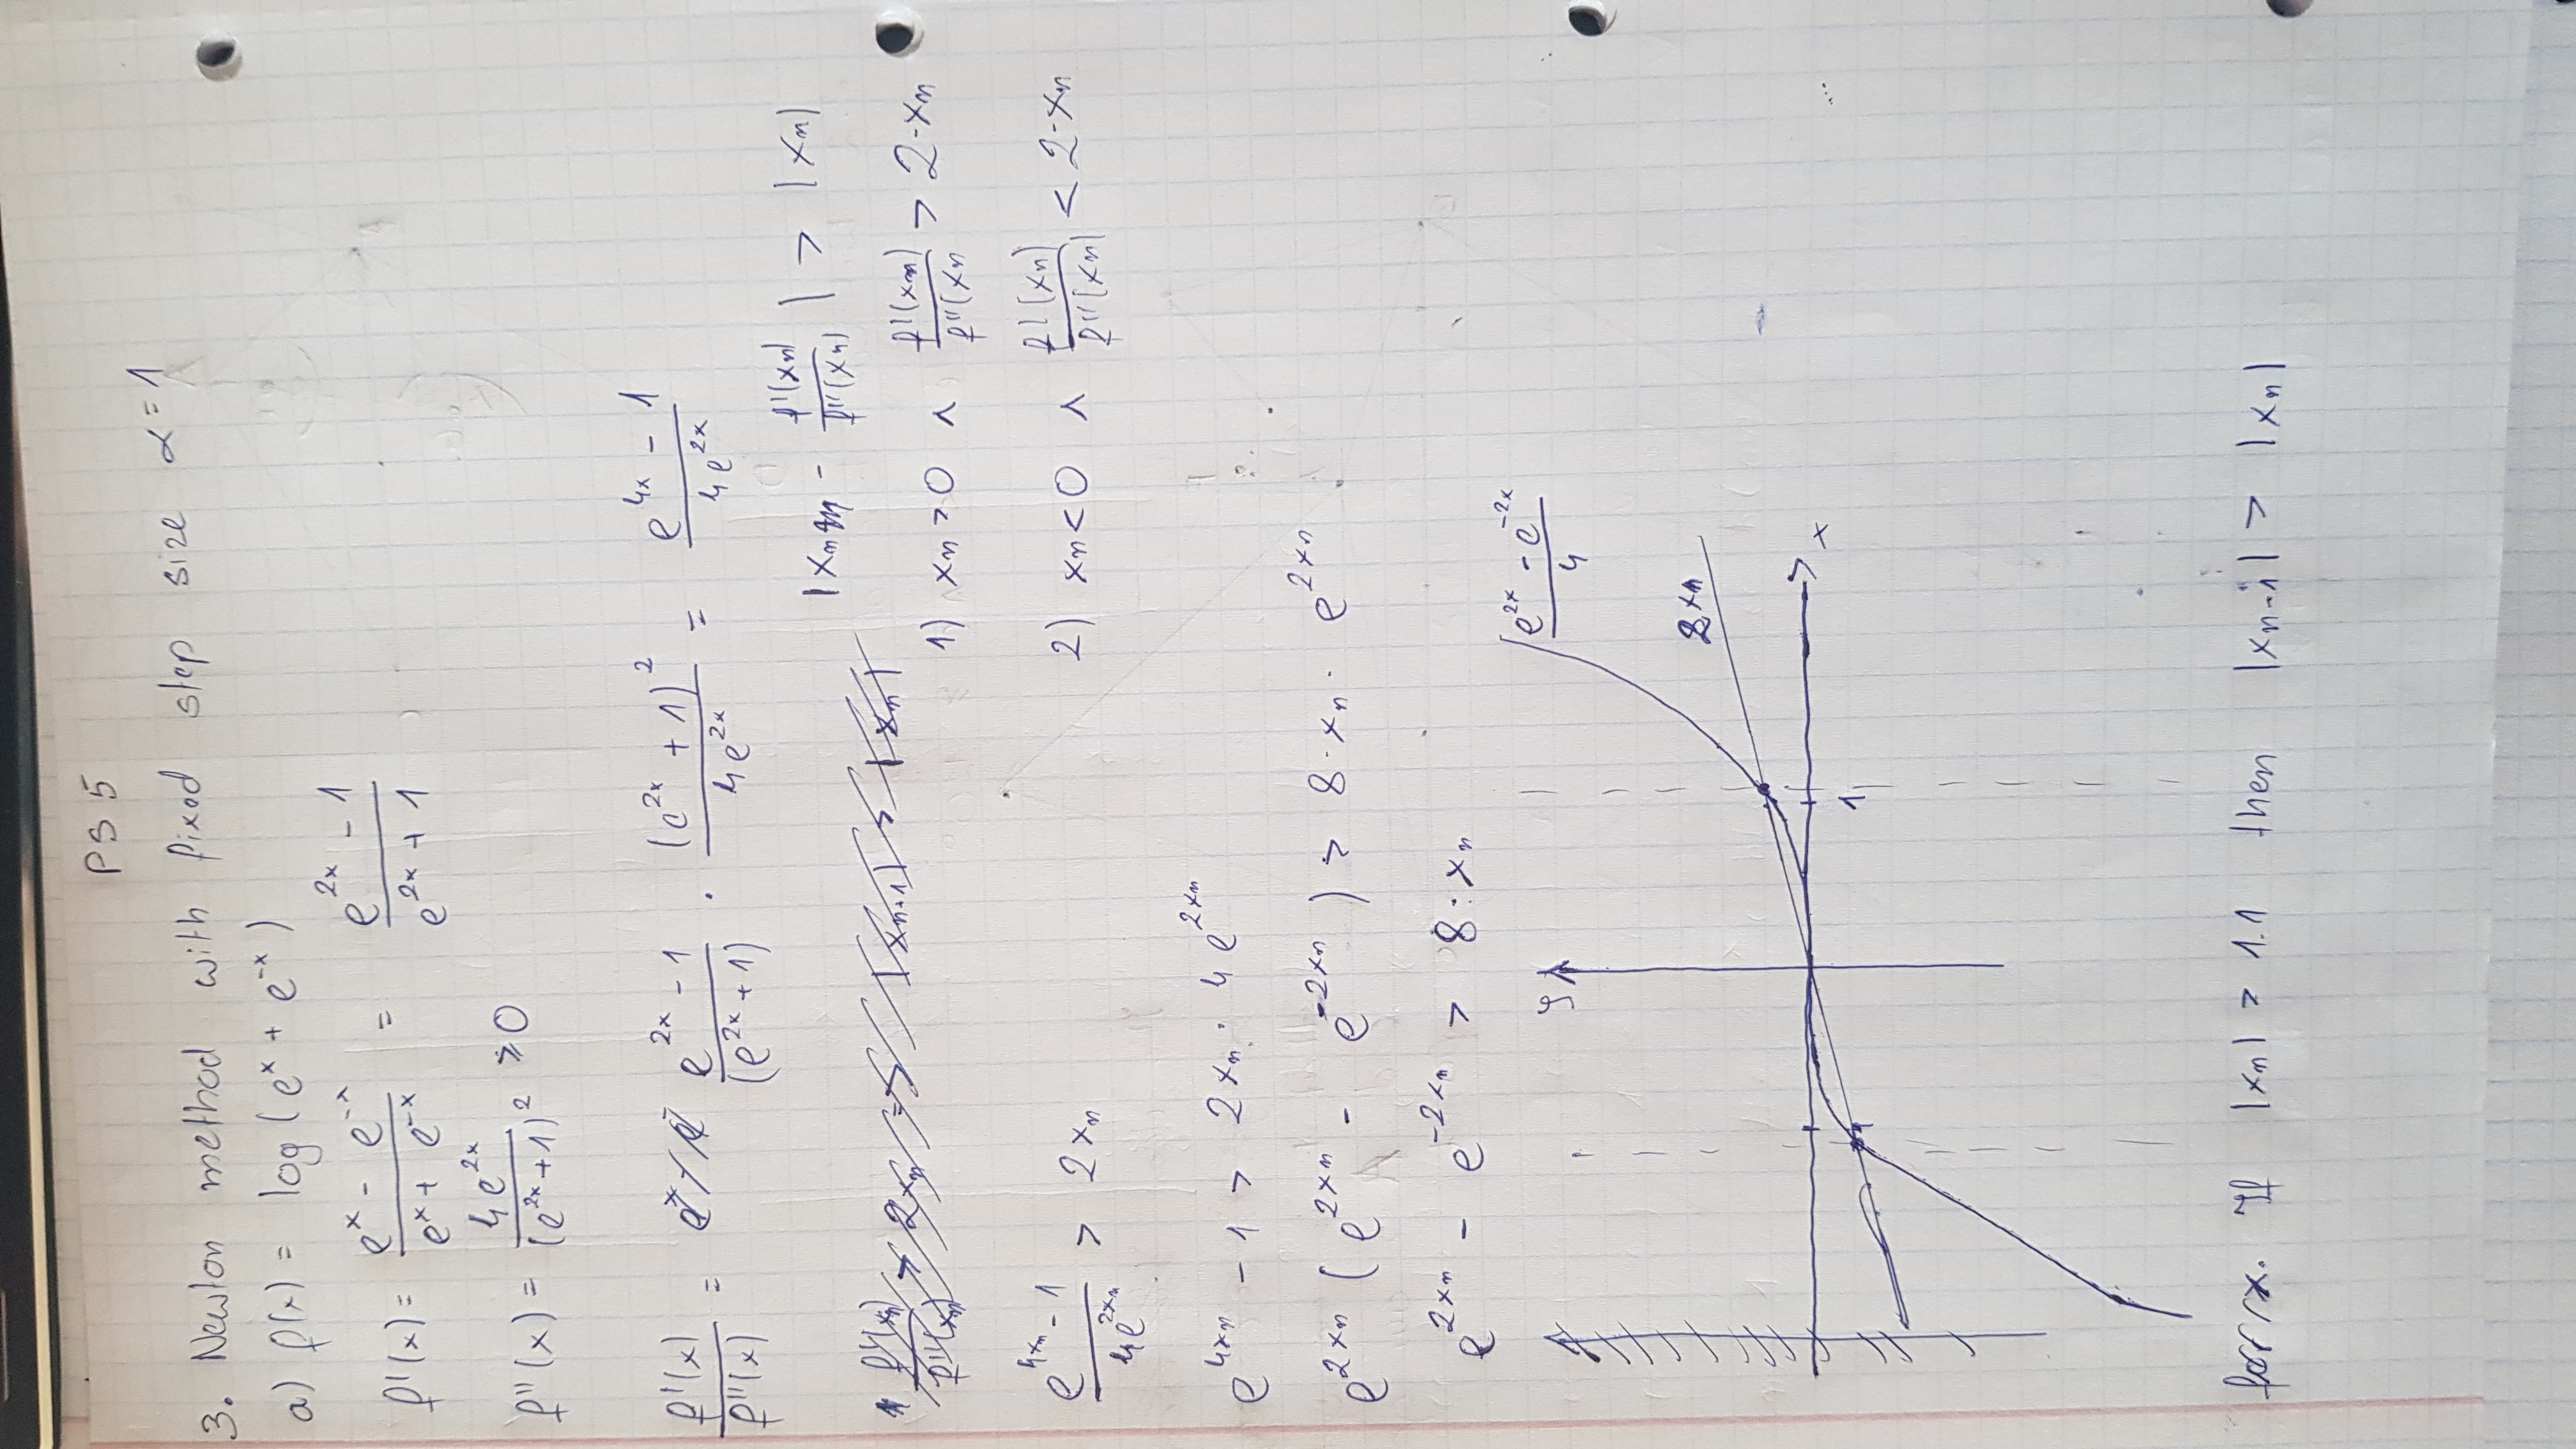 PS 5
3. Newton method with fixed step size α = 1
a) f(x) = log(e^x + e^-x)
f'(x) = (e^x - e^-x)/(e^x + e^-x) = (e^2x - 1)/(e^2x + 1)
f''(x) = 4e^2x/(e^2x + 1)^2 ≥ 0
f'(x)/f''(x) = (e^2x - 1)/(e^2x + 1) · (e^2x + 1)^2/4e^2x = (e^4x - 1)/4e^2x
|x_n - f'(x_n)/f''(x_n)| > |x_n|
f'(x_n)/f''(x_n) > 2x_n => |x_n+1| > |x_n|
1) x_n > 0 ∧ f'(x_n)/f''(x_n > 2·x_n
2) x_n < 0 ∧ f'(x_n)/f''(x_n) < 2·x_n
(e^4x_n - 1)/4e^2x_n > 2x_n
e^4x_n - 1 > 2x_n · 4e^2x_n
e^2x_n (e^2x_n - e^-2x_n) > 8·x_n · e^2x_n
e^2x_n - e^-2x_n > 8·x_n
(e^2x - e^-2x)/4
y
2x_n
x
1
If |x_n| > 1.1 then |x_n-1| > |x_n|